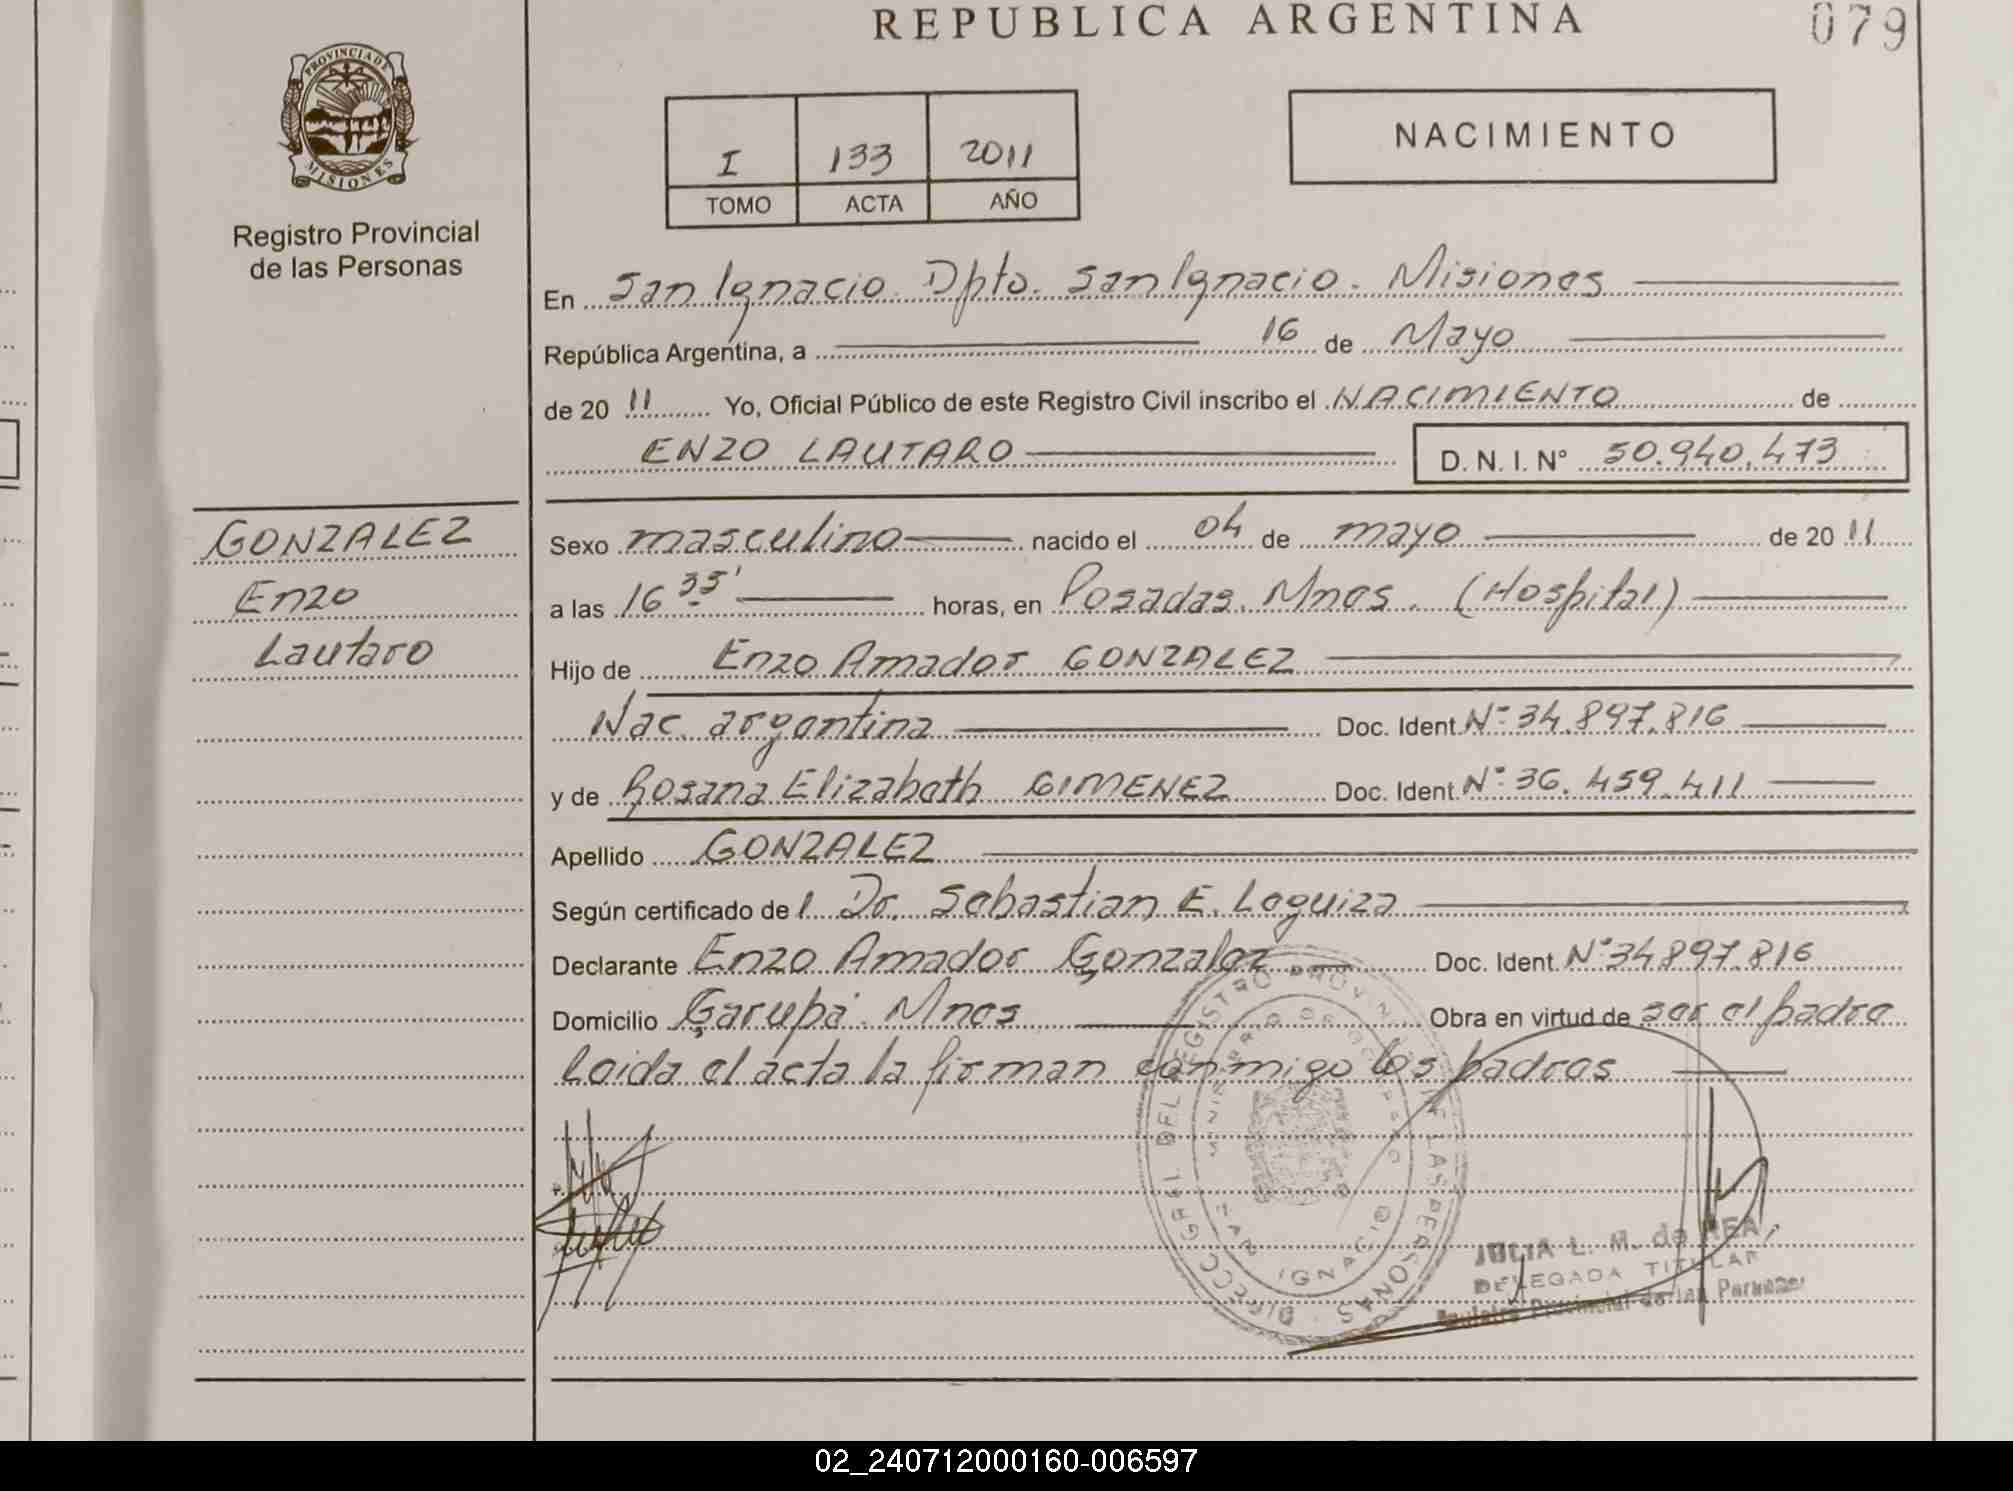 REPUBLICA ARGENTINA
079
PROVINCIA DE
MISIONES
Registro Provincial
de las Personas
I 133 2011
TOMO ACTA AÑO
NACIMIENTO
En San Ignacio. Dpto. San Ignacio. Misiones
República Argentina, a 16 de Mayo
de 20 11 Yo, Oficial Público de este Registro Civil inscribo el NACIMIENTO de
ENZO LAUTARO D. N. I. N° 50.940.473
GONZALEZ
Enzo
Lautaro
Sexo masculino nacido el 04 de mayo de 20 11
a las 16 35' horas, en Posadas. Mnes. (Hospital)
Hijo de Enzo Amador GONZALEZ
Nac. argentina Doc. Ident. N° 34.897.816
y de Rosana Elizabeth GIMENEZ Doc. Ident. N° 36.459.411
Apellido GONZALEZ
Según certificado de l Dr. Sebastian E. Leguiza
Declarante Enzo Amador Gonzalez Doc. Ident. N° 34897.816
Domicilio Garupá. Mnes Obra en virtud de ser el padre
Leida el acta la firman conmigo los padres
DIRECC. GRAL. DEL REGISTRO PROVINCIAL DE LAS PERSONAS
MINISTERIO DE GOBIERNO
SAN IGNACIO
JULIA L. M. de REA
DELEGADA TITULAR
Registro Provincial de las Personas
02_240712000160-006597